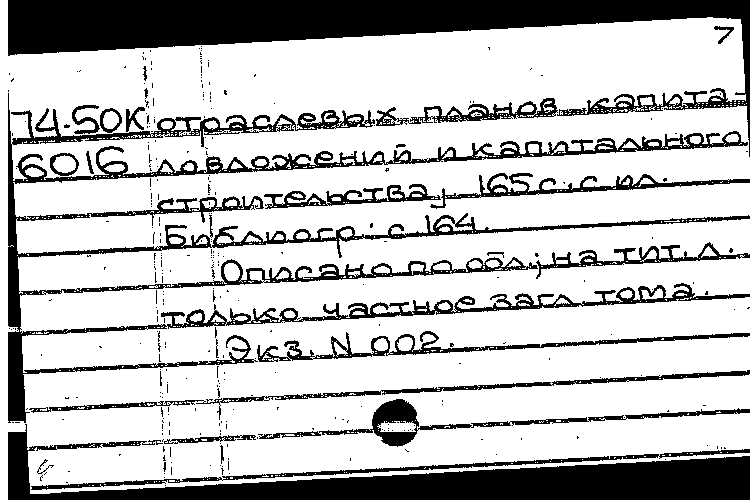 7
74-50К отраслевых планов капита-
6016 ловложений и капитального
строительства, 165 с. с ил.
Библиогр.: с. 164.
Описано по обл.; на тит. л.
только частное загл. тома.
Экз. N 002.